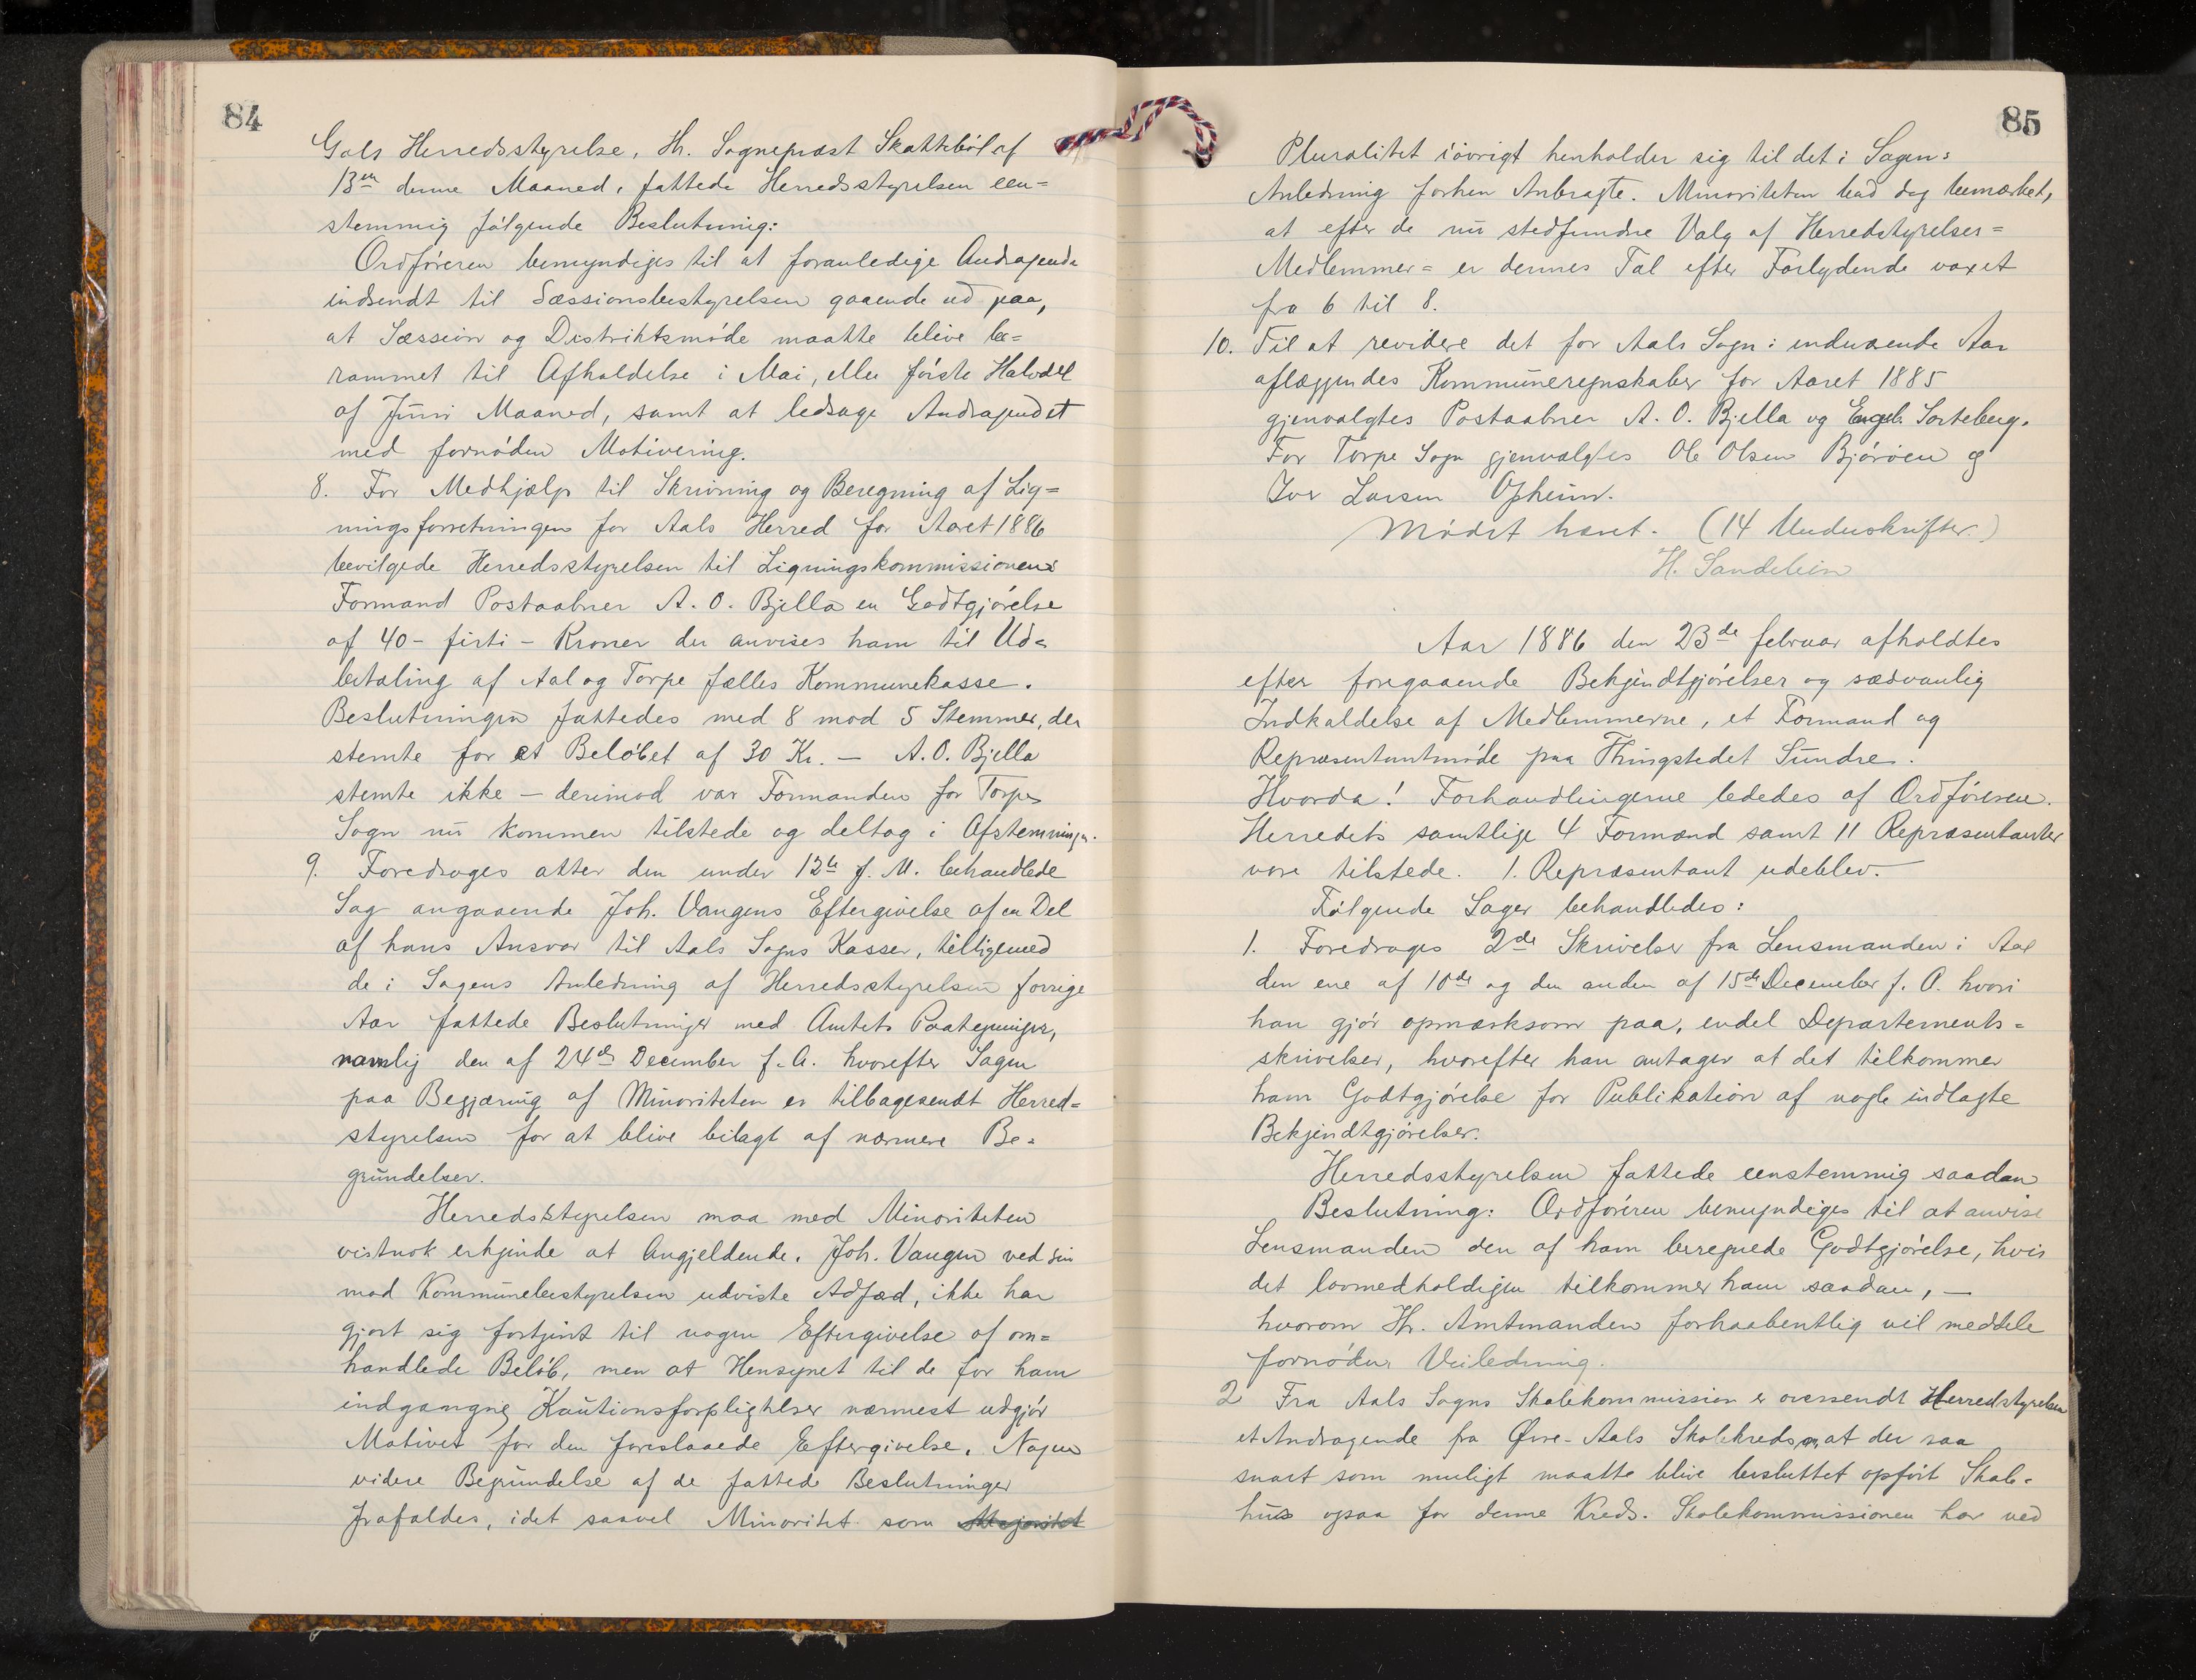 84
Gols Herredsstyrelse, Hr. Sognepræst Skattebøl af
13en denne Maaned, fattede Herredsstyrelsen een=
stemmig følgende Beslutning:
Ordføreren bemyndiges til at foranledige Andragende
indsendt til Sessionsbestyrelsen gaaende ud paa,
at Session og Distriktsmøde maatte blive be=
rammet til Afholdelse i Mai, eller første Halvdel
af Juni Maaned, samt at ledsage Andragendet
med fornøden Motivering.
8. For Medhjælp til Skrivning og Beregning af Lig=
ningsforretningen for Aals Herred for Aaret 1886
bevilgede Herredsstyrelsen til Ligningskommissionens
Formand Postaabner A. O. Bjella en Godtgjørelse
af 40 - firti - Kroner der anvises ham til Ud=
betaling af Aal og Torpe fælles Kommunekasse.
Beslutningen fattedes med 8 mod 5 Stemmer, der
stemte for et Beløbet af 30 Kr. — A. O. Bjella
stemte ikke — derimod var Formanden for Torpe
Sogn nu kommen tilstede og deltog i Afstemningen.
9. Foredroges atter den under 12te f. M. behandlede
Sag angaaende Joh. Vangens Eftergivelse af en Del
af hans Ansvar til Aals Sogns Kasser, tilligemed
de i Sagens Anledning af Herredsstyrelsen forrige
Aar fattede Beslutninger med Amtets Paategninger,
navnlig den af 24de December f. A. hvorefter Sagen
paa Begjæring af Minoriteten er tilbagesendt Herred=
styrelsen for at blive bilagt af nærmere Be=
grundelser.
Herredsstyrelsen maa med Minoriteten
vistnok erkjende at Angjeldende, Joh. Vangen ved sin
mod Kommunebestyrelsen udviste Adfæd, ikke har
gjort sig fortjent til nogen Eftergivelse af om=
handlede Beløb, men at Hensynet til de for ham
indgangne Kautionsforpligtelser nærmest udgjør
Motivet for den foreslaaede Eftergivelse. Nogen
videre Begrundelse af de fattede Beslutninger
frafaldes, idet saavel Minoritet som Majoritet
85
Pluralitet iøvrigt henholder sig til det i Sagens
Anledning forhen Anbragte. Minoriteten bad dog bemærket,
at efter de nu stedfundne Valg af Herredstyrelses=
Medlemmer= er dennes Tal efter Forlydende voxet
fra 6 til 8.
10. Til at revidere det for Aals Sogn i indeværende Aar
aflæggendes Kommuneregnskaber for Aaret 1885
gjenvalgtes Postaabner A. O. Bjella og Engeb. Sorteberg.
For Torpe Sogn gjenvalgtes Ole Olsen Bjøroen og
Iver Larsen Opheim.
Mødet hævet. (14 Underskrifter.)
H. Sandelein
Aar 1886 den 23de februar afholdtes
efter foregaaende Bekjendtgjørelser og sædvanlig
Indkaldelse af Medlemmerne, et Formand og
Repræsentantmøde paa Thingstedet Sundre.
Hvorda! Forhandlingerne lededes af Ordføreren.
Herredets samtlige 4 Formænd samt 11 Repræsentanter
vare tilstede. 1. Repræsentant udeblev.
Følgende Sager behandledes:
1. Foredroges 2de Skrivelser fra Lensmanden i Aal
den ene af 10de og den anden af 15de December f. A. hvori
han gjør opmærksom paa, endel Departements=
skrivelser, hvorefter han antager at det tilkommer
ham Godtgjørelse for Publikation af nogle indlagte
Bekjendtgjørelser.
Herredsstyrelsen fattede eenstemmig saadan
Beslutning: Ordføreren bemyndiges til at anvise
Lensmanden den af ham beregnede Godtgjørelse, hvis
det lovmedholdigen tilkommer ham saadan, —
hvorom Hr. Amtmanden forhaabentlig vil meddele
fornøden Veiledning.
2 Fra Aals Sogns Skolekommission er oversendt Herredstyrelsen
et Andragende fra Øvre-Aals Skolekreds om, at der saa
snart som muligt maatte blive besluttet opført Skole=
hus ogsaa for denne Kreds. Skolekommissionen har ved